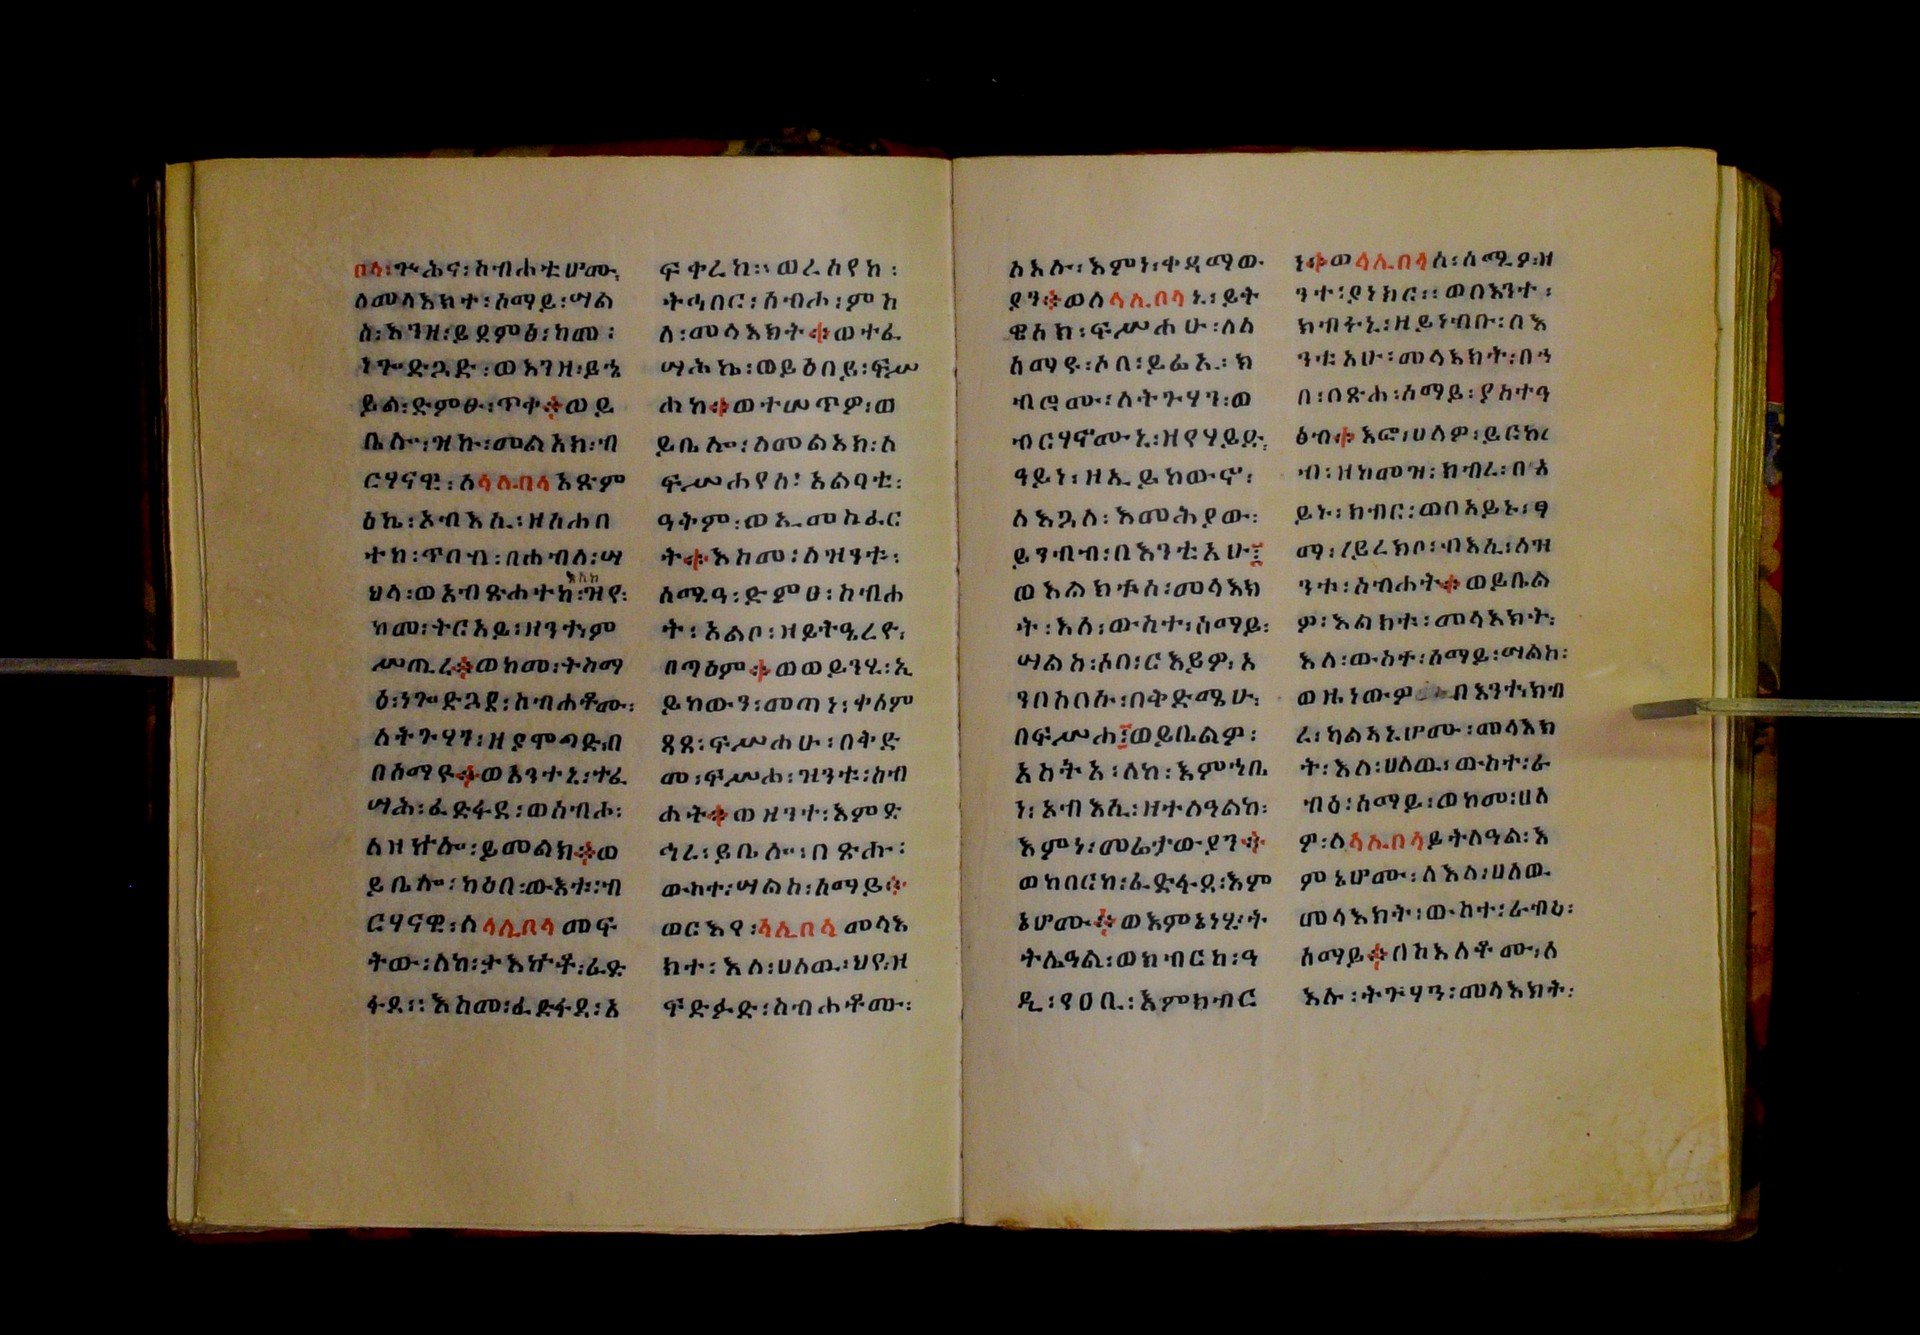 በላ፡ጕሕና፡ስብሐቲሆሙ፡
ዕመላእክተ፡ሰማይ፡ሣል
ስ፡እንዘ፡ይደምፅ፡ከመ፡
ነጐድጓድ፡ወእንዘ፡ይኄ
ይል፡ድምፁ፡ጥቀ፨ወይ
ቤሎ፡ዝኩ፡መልአክ፡ብ
ርሃናዊ፡ለላሊበላአጽም
ዕኬ፡አብእሲ፡ዘሰሐበ
ተከ፡ጥበብ፡በሐብለ፡ሣ
ህላ፡ወአብጽሐተከ፡ዝየ፡
እስከ
ከመ፡ትርአይ፡ዘንተ፡ም
ሥጢረ፨ወከመ፡ትስማ
ዕ፡ነጐድጓደ፡ስብሐቶሙ፡
ለትጉሃን፡ዘያሞጣድ፡በ
በሰማዩ፨ወእንተኒ፡ተፈ
ሣሕ፡ፈድፋደ፡ወሰብሖ፡
ለዘኵሎ፡ይመልክ፨ወ
ይቤሎ፡ካዕበ፡ውእቱ፡ብ
ርሃናዊ፡ለላሊበላመፍ
ትው፡ለከ፡ታእኵቶ፡ፈድ
ፋደ፡፡እስመ፡ፈድፋደ፡አ
ፍቀረከ፡፡ወረሰየከ፡
ትኅበር፡ስብሐ፡ምስ
ለ፡መላእክት፨ወተፈ
ሣሕኬ፡ወይዕበይ፡ፍሥ
ሐከ፨ወተሠጥዎ፡ወ
ይቤሎ፡ለመልአክ፡ለ
ፍሥሐየሰ፡አልባቲ፡
ዓትም፡ወኢመከፈር
ት፨እስመ፡ለዝንቱ፡
ሰሚዓ፡ድምፀ፡ስብሐ
ት፡አልቦ፡ዘይትዔረዮ፡
በጣዕም፨ወወይንሂ፡ኢ
ይከውን፡መጠነ፡ቀለም
ጸጸ፡ፍሥሐሁ፡በቅድ
መ፡ፍሥሐ፡ዝንቱ፡ስብ
ሐት፨ወዘንተ፡እምድ
ኅረ፡ይቤሎ፡በጽሑ፡
ውስተ፡ሣልስ፡ሰማይ፨
ወርእየ፡ላሊበላመላእ
ክተ፡እለ፡ሀለዉ፡ህየ፡ዘ
ፍድፉድ፡ስብሐቶሙ፡
ለእሉ፡እምነ፡ቀዳማው
ያን፨ወለላሊበላኒ፡ይት
ዌሰክ፡ፍሥሐሁ፡ለለ
ሰማዩ፡ሶበ፡ይሬኢ፡ክ
ብሮሙ፡ለትጉሃን፡ወ
ብርሃኖሙኒ፡ዘየሃይድ፡
ዓይነ፡ዘኢይከውኖ፡
ለእጓለ፡እመሕያው፡
ይንብብ፡በእንቲአሁ፨
ወእልክቱሰ፡መላእክ
ት፡እለ፡ውስተ፡ሰማይ፡
ሣልስ፡ሶበ፡ርእይዎ፡አ
ንበስበሱ፡በቅድሜሁ፡
በፍሥሐ፨ወይቤልዎ፡
አስትአ፡ለከ፡እምኀቤ
ነ፡አብእሲ፡ዘተለዓልከ፡
እምነ፡መሬታውያን፨
ወከበርከ፡ፈድፋደ፡እም
ኔሆሙ፨ወእምኔነሂ፡ት
ትሌዓል፡ወክብርከ፡ዓ
ዲ፡የዐቢ፡እምክብር
ነ፨ወላሊበላሰ፡ሰሚዖ፡ዘ
ንተ፡ያነክር፡፡ወበእንተ፡
ክብሩኒ፡ዘይነብቡ፡በእ
ንቲአሁ፡መላእክት፡በኀ
በ፡በጽሐ፡ሰማይ፡ያስተዓ
ፅብ፨እፎ፡ሀለዎ፡ይርከ
ብ፡ዘከመዝ፡ክብረ፡በአ
ይኑ፡ክብር፡ወበአይኑ፡ፃ
ማ፡ይረክቦ፡ብእሲ፡ለዝ
ንቱ፡ስብሐት፨ወይቤል
ዎ፡እልክቱ፡መላእክት፡
እለ፡ውስተ፡ሰማይ፡ሣልስ፡
ወዜነውዎ በእንተ፡ክብ
ረ፡ካልኣኒሆሙ፡መላእክ
ት፡እለ፡ሀለዉ፡ውስተ፡ራ
ብዕ፡ሰማይ፡ወከመ፡ሀለ
ዎ፡ለላሊበላይትለዓል፡እ
ምኔሆሙ፡ለእለ፡ሀለዉ
መላእክት፡ውስተ፡ራብዕ፡
ሰማይ፨በከእለቶሙ፡ለ
እሉ፡ትጉሃን፡መላእክት፡